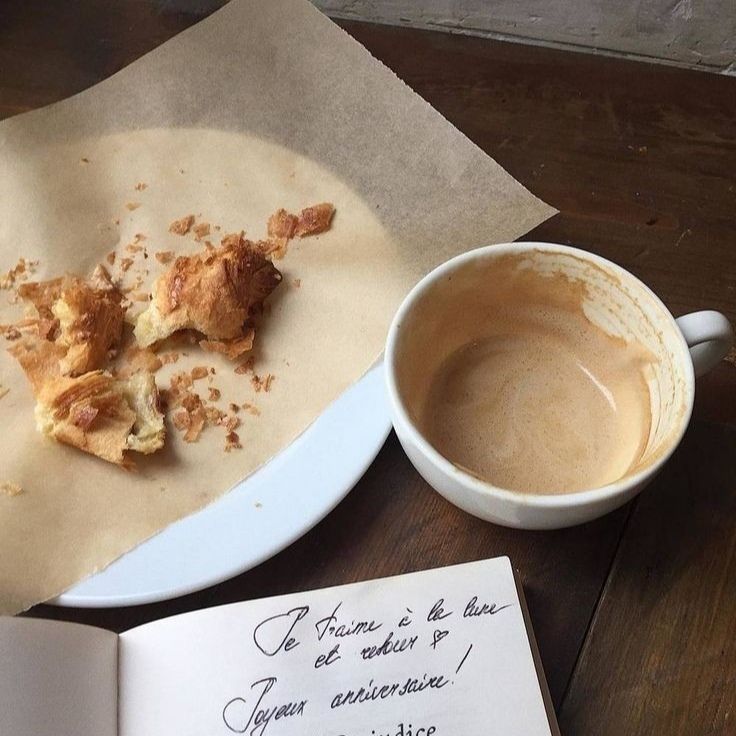 Je t'aime à la lune
et retour
Joyeux anniversaire!
judice